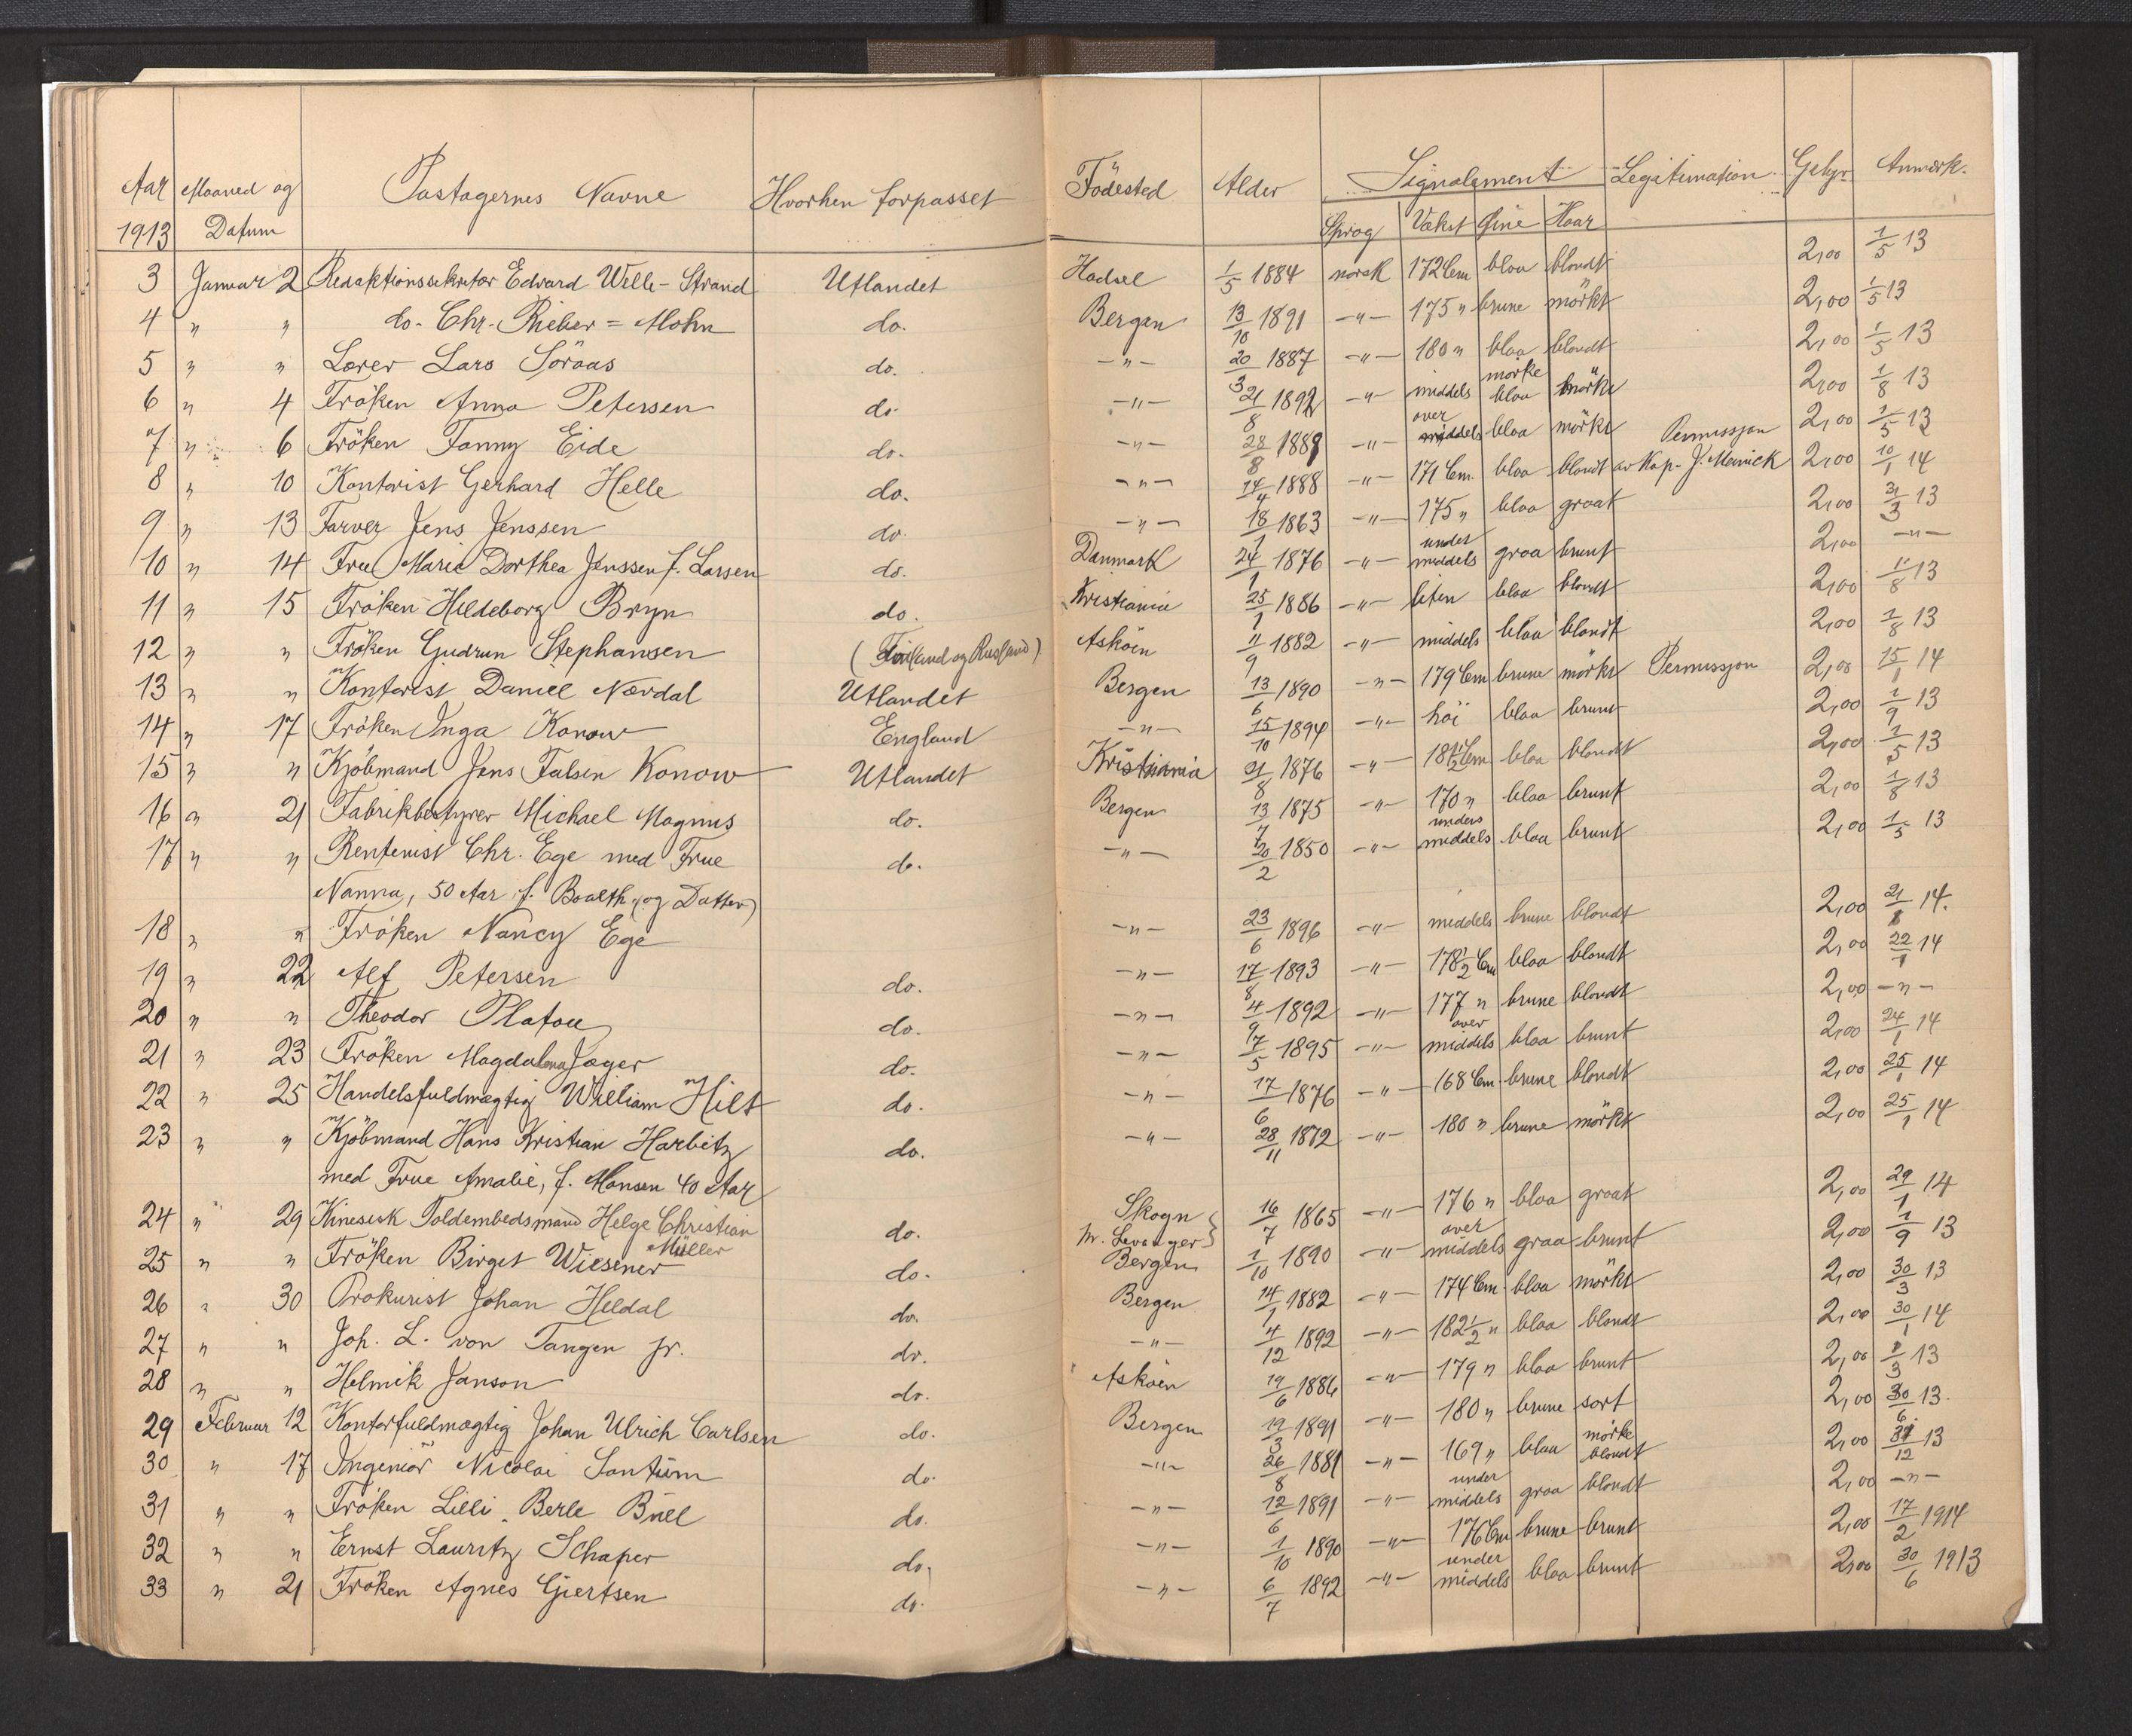 Aar Maaned og Pastagernes Navne Hvorhen forpasset Födested Alder Signalement Legitimation Gebyr Anmærk.
1913 Datum Sprog Vækst Øine Haar
3 Januar 2 Redaktionssekretær Edvard Welle-Strand Utlandet Hadsel 1/5 1884 norsk 172 Cm blaa blondt 2,00 1/5 13
4 " " do. Chr. Rieber=Mohn do. Bergen 13/10 1891 -"- 175 " brune mörkt 2,00 1/5 13
5 " " Lærer Lars Söraas do. -"- 20/3 1887 -"- 180 " blaa blondt 2,00 1/5 13
6 " 4 Fröken Anna Petersen do. -"- 21/8 1892 -"- middels mörke blaa mörke 2,00 1/8 13
7 " 6 Fröken Fanny Eide do. -"- 28/8 1888 -"- over middels blaa mörkt 2,00 1/5 13
8 " 10 Kontorist Gerhard Helle do. -"- 14/4 1888 -"- 171 Cm. blaa blondt Permissjon av Kap. J. Meinick 2,00 10/1 14
9 " 13 Farver Jens Jenssen do. -"- 18/1 1863 -"- 175 " blaa graat 2,00 31/3 13
10 " 14 Frue Marie Dorthea Jenssen f. Larsen do. Danmark 24/1 1876 -"- under middels graa brunt 2,00 -"-
11 " 15 Fröken Hildeborg Bryn do. Kristiania 25/1 1886 -"- liten blaa blondt 2,00 1/8 13
12 " " Fröken Gudrun Stephansen (Finland og Rusland) Asköen 11/9 1882 -"- middels blaa blondt 2,00 1/8 13
13 " " Kontorist Daniel Nærdal Utlandet Bergen 13/6 1890 -"- 179 Cm brune mörkt Permissjon 2,00 15/1 14
14 " 17 Fröken Inga Konow England -"- 15/10 1894 -"- höi blaa brunt 2,00 1/9 13
15 " " Kjöbmand Jens Falsen Konow Utlandet Kristiania 21/8 1876 -"- 181 1/2 Cm blaa blondt 2,00 1/5 13
16 " 21 Fabrikbestyrer Michael Magnus do. Bergen 13/7 1875 -"- 170 " blaa brunt 2,00 1/8 13
17 " " Rentenist Chr. Ege med Frue do. -"- 20/2 1850 -"- unders middels blaa brunt 2,00 1/5 13
Nanna, 50 Aar f. Boalth (og Datter)
18 " " Fröken Nancy Ege -"- 23/6 1896 -"- middels brune blondt 2,00 21/1 14.
19 " 22 Alf Petersen do. -"- 17/8 1893 -"- 178 1/2 Cm blaa blondt 2,00 22/1 14
20 " " Theodor Platou do. -"- 4/9 1892 -"- 177 " brune blondt 2,00 -"-
21 " 23 Fröken Magdalena Jæger do. -"- 17/5 1895 -"- over middels blaa brunt 2,00 24/1 14
22 " 25 Handelsfuldmægtig William Hilt do. -"- 17/6 1876 -"- 168 Cm brune blondt 2,00 25/1 14
23 " " Kjöbmand Hans Kristian Harbitz do. -"- 28/11 1872 -"- 180 " brune mörkt 2,00 25/1 14
med Frue Amalie, f. Hansen 40 Aar
24 " 29 Kinesisk Toldembedsmand Helge Christian Müller do. Skogn nr. Levanger 16/7 1865 -"- 176 " blaa graat 2,00 29/1 14
25 " " Fröken Birget Wiesener do. Bergen 1/10 1890 -"- over middels graa brunt 2,00 1/9 13
26 " 30 Prokurist Johan Heldal do. Bergen 14/1 1882 -"- 174 Cm. blaa mörkt 2,00 30/3 13
27 " " Joh. L. von Tangen jr. do. -"- 4/12 1892 -"- 182 1/2 " blaa blondt 2,00 30/1 14
28 " " Helmik Janson do. Asköen 19/6 1886 -"- 179 " blaa brunt 2,00 1/3 13
29 Februar 12 Kontorfuldmægtig Johan Ulrich Carlsen do. Bergen 19/3 1891 -"- 180 " brune sort 2,00 30/6 13.
30 " 17 Ingeniör Nicolai Santum do. -"- 26/8 1881 -"- 169 " blaa mörke blondt 2,00 31/12 13
31 " " Fröken Lilli Berle Büll do. -"- 12/6 1891 -"- under middels graa blondt 2,00 -"-
32 " " Ernst Lauritz Schaper do. -"- 1/10 1890 -"- 176 Cm brune brunt 2,00 17/2 1914
33 " 21 Fröken Agnes Gjertsen do. -"- 6/7 1892 -"- under middels blaa brunt 2,00 30/6 1913